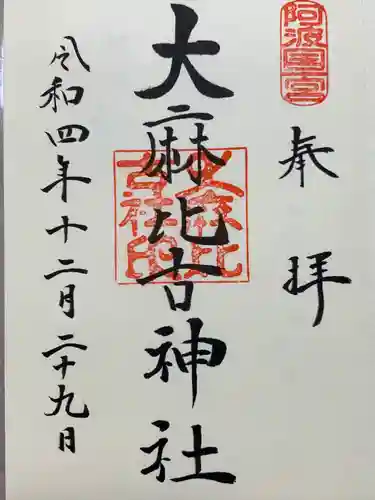 阿波国一宮
奉拝
大麻比古神社
大麻比古社印
令和四年十二月二十九日